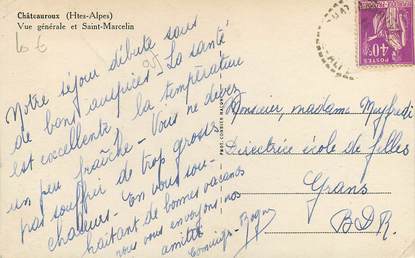 Châteauroux (Htes-Alpes)
Vue générale et Saint-Marcelin
6 €
Notre séjour débute sous
de bons auspices - La santé
est excellente, la température
un peu fraîche - Vous ne devez
pas souffrir de trop grosses
chaleurs - En vous sou-
haitant de bonnes vacances
nous vous envoyons nos
amitiés
Monsieur, madame
Directrice école de filles
Grans
B.D.R.
POSTES
40c